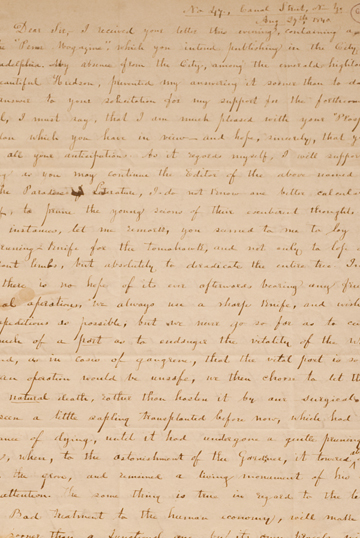 No. 47, Canal Street, N. Y.
Aug 29th 1840
Dear Sir, I received your letter this evening, containing a
"Penn Magazine" which you intend publishing in the City
adelphia. My absence from the City, among the emerald highlan
eautiful Hudson, prevented my answering it sooner than to do
answer to your solicitation for my support for the forthcom
I must say, that I am much pleased with your "Prosp
tion which you have in view and hope, sincerely, that yo
all your anticipations. As it regards myself, I will support
as you may continue the Editor of the above named
the Paradise of Literature, I do not know one better calcul
to prune the young scions of their exuberant thoughts
instances, let me remark, you seemed to me to lay
pruning-knife for the tomahawk, and not only to lop
ant limbs, but absolutely to eradicate the entire tree. I
there is no hope of its ever afterwards bearing any frui
al operations, we always use a sharp knife, and
xpeditious as possible, but we never go so far as to c
uch of a part as to endanger the vitality of the
nd, as in cases of gangrene, that the vital part is so
an operation would be unsafe, we then choose to let th
natural death, rather than hasten it by our surgical
seen a little sapling transplanted before now, which had
ance of dying, until it had undergone a gentle pruning
when, to the astonishment of the Gardner, it towered
the grove, and remained a living monument of his
attention. The same thing is true in regard to the
Bad treatment to the human economy, will make
sooner than a